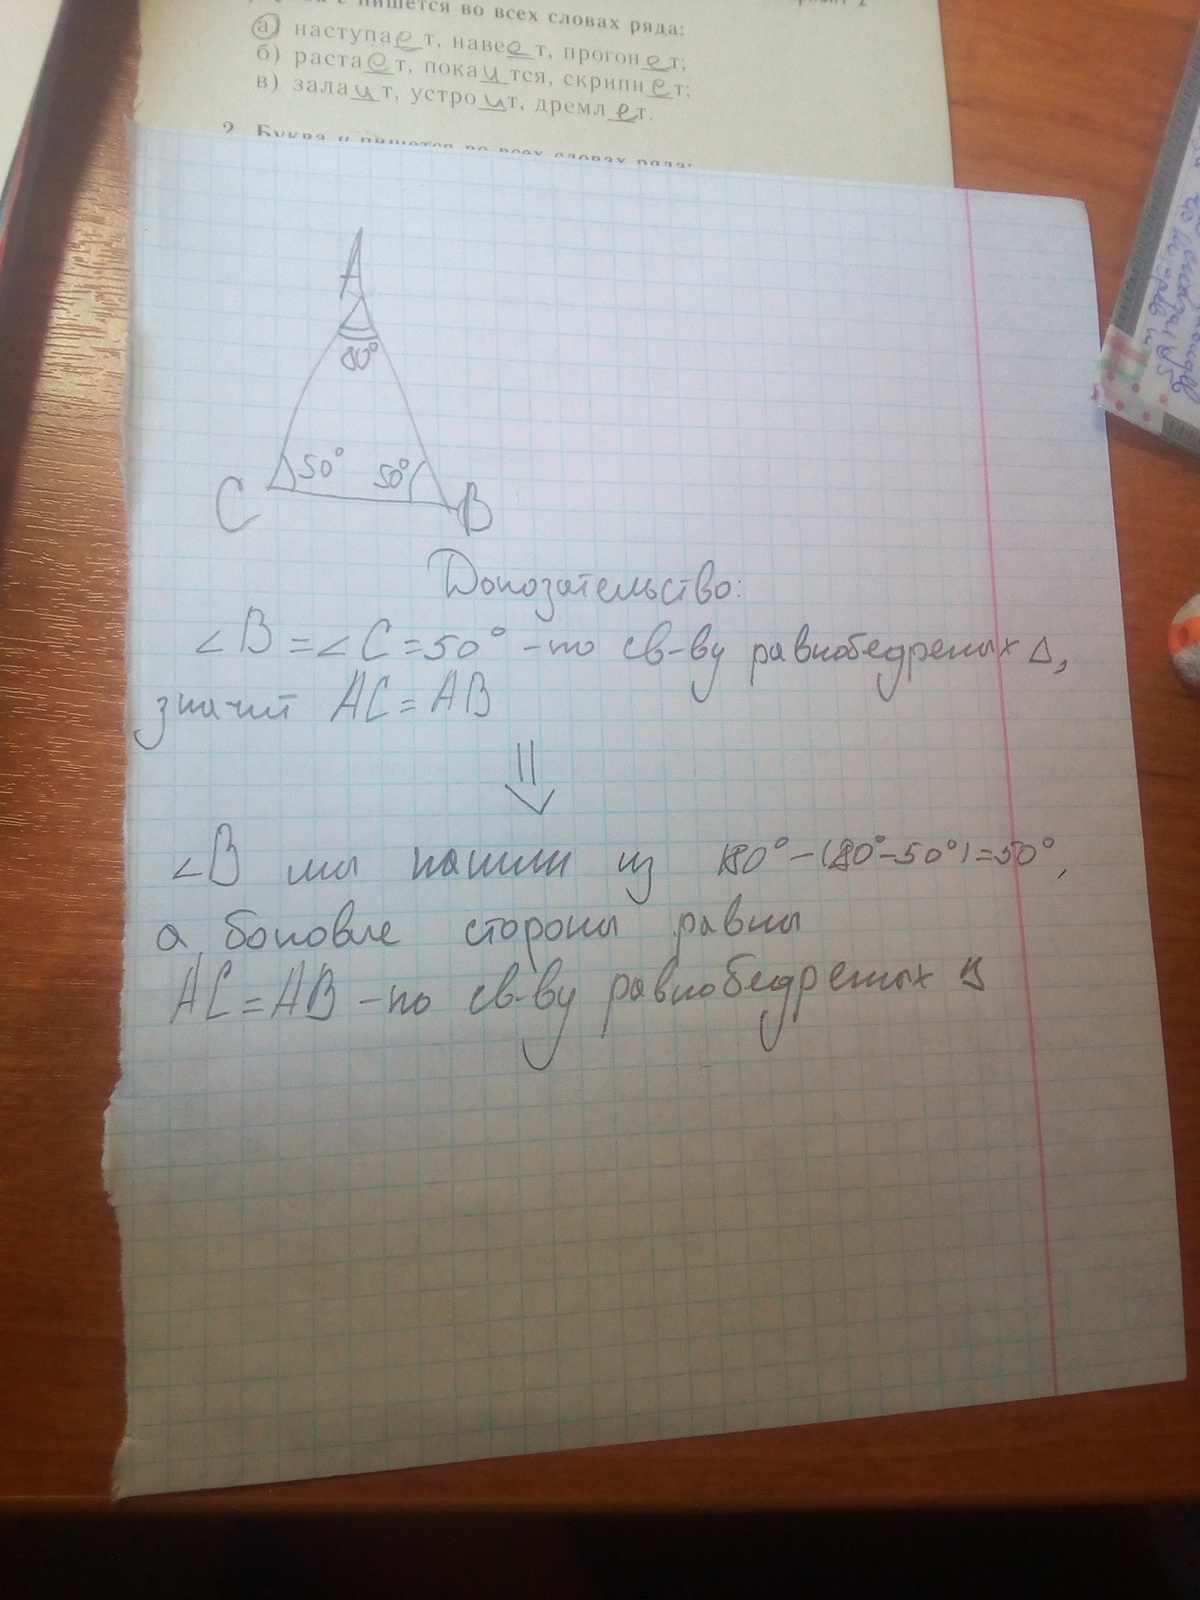 с пишется во всех словах ряда:
а) наступает, навеет, прогонет;
б) растает, покаится, скрипнет;
в) залаит, устроит, дремлет.
2. Буква и пишется во всех словах ряда:
A
80°
50° 50°
C B
Доказательство:
∠B=∠C=50° -по св-ву равнобедреных Δ,
значит AC=AB
⇓
∠B мы нашли из 180°-(80°-50°)=50°,
а боковые стороны равны
AC=AB -по св-ву равнобедреных Δ